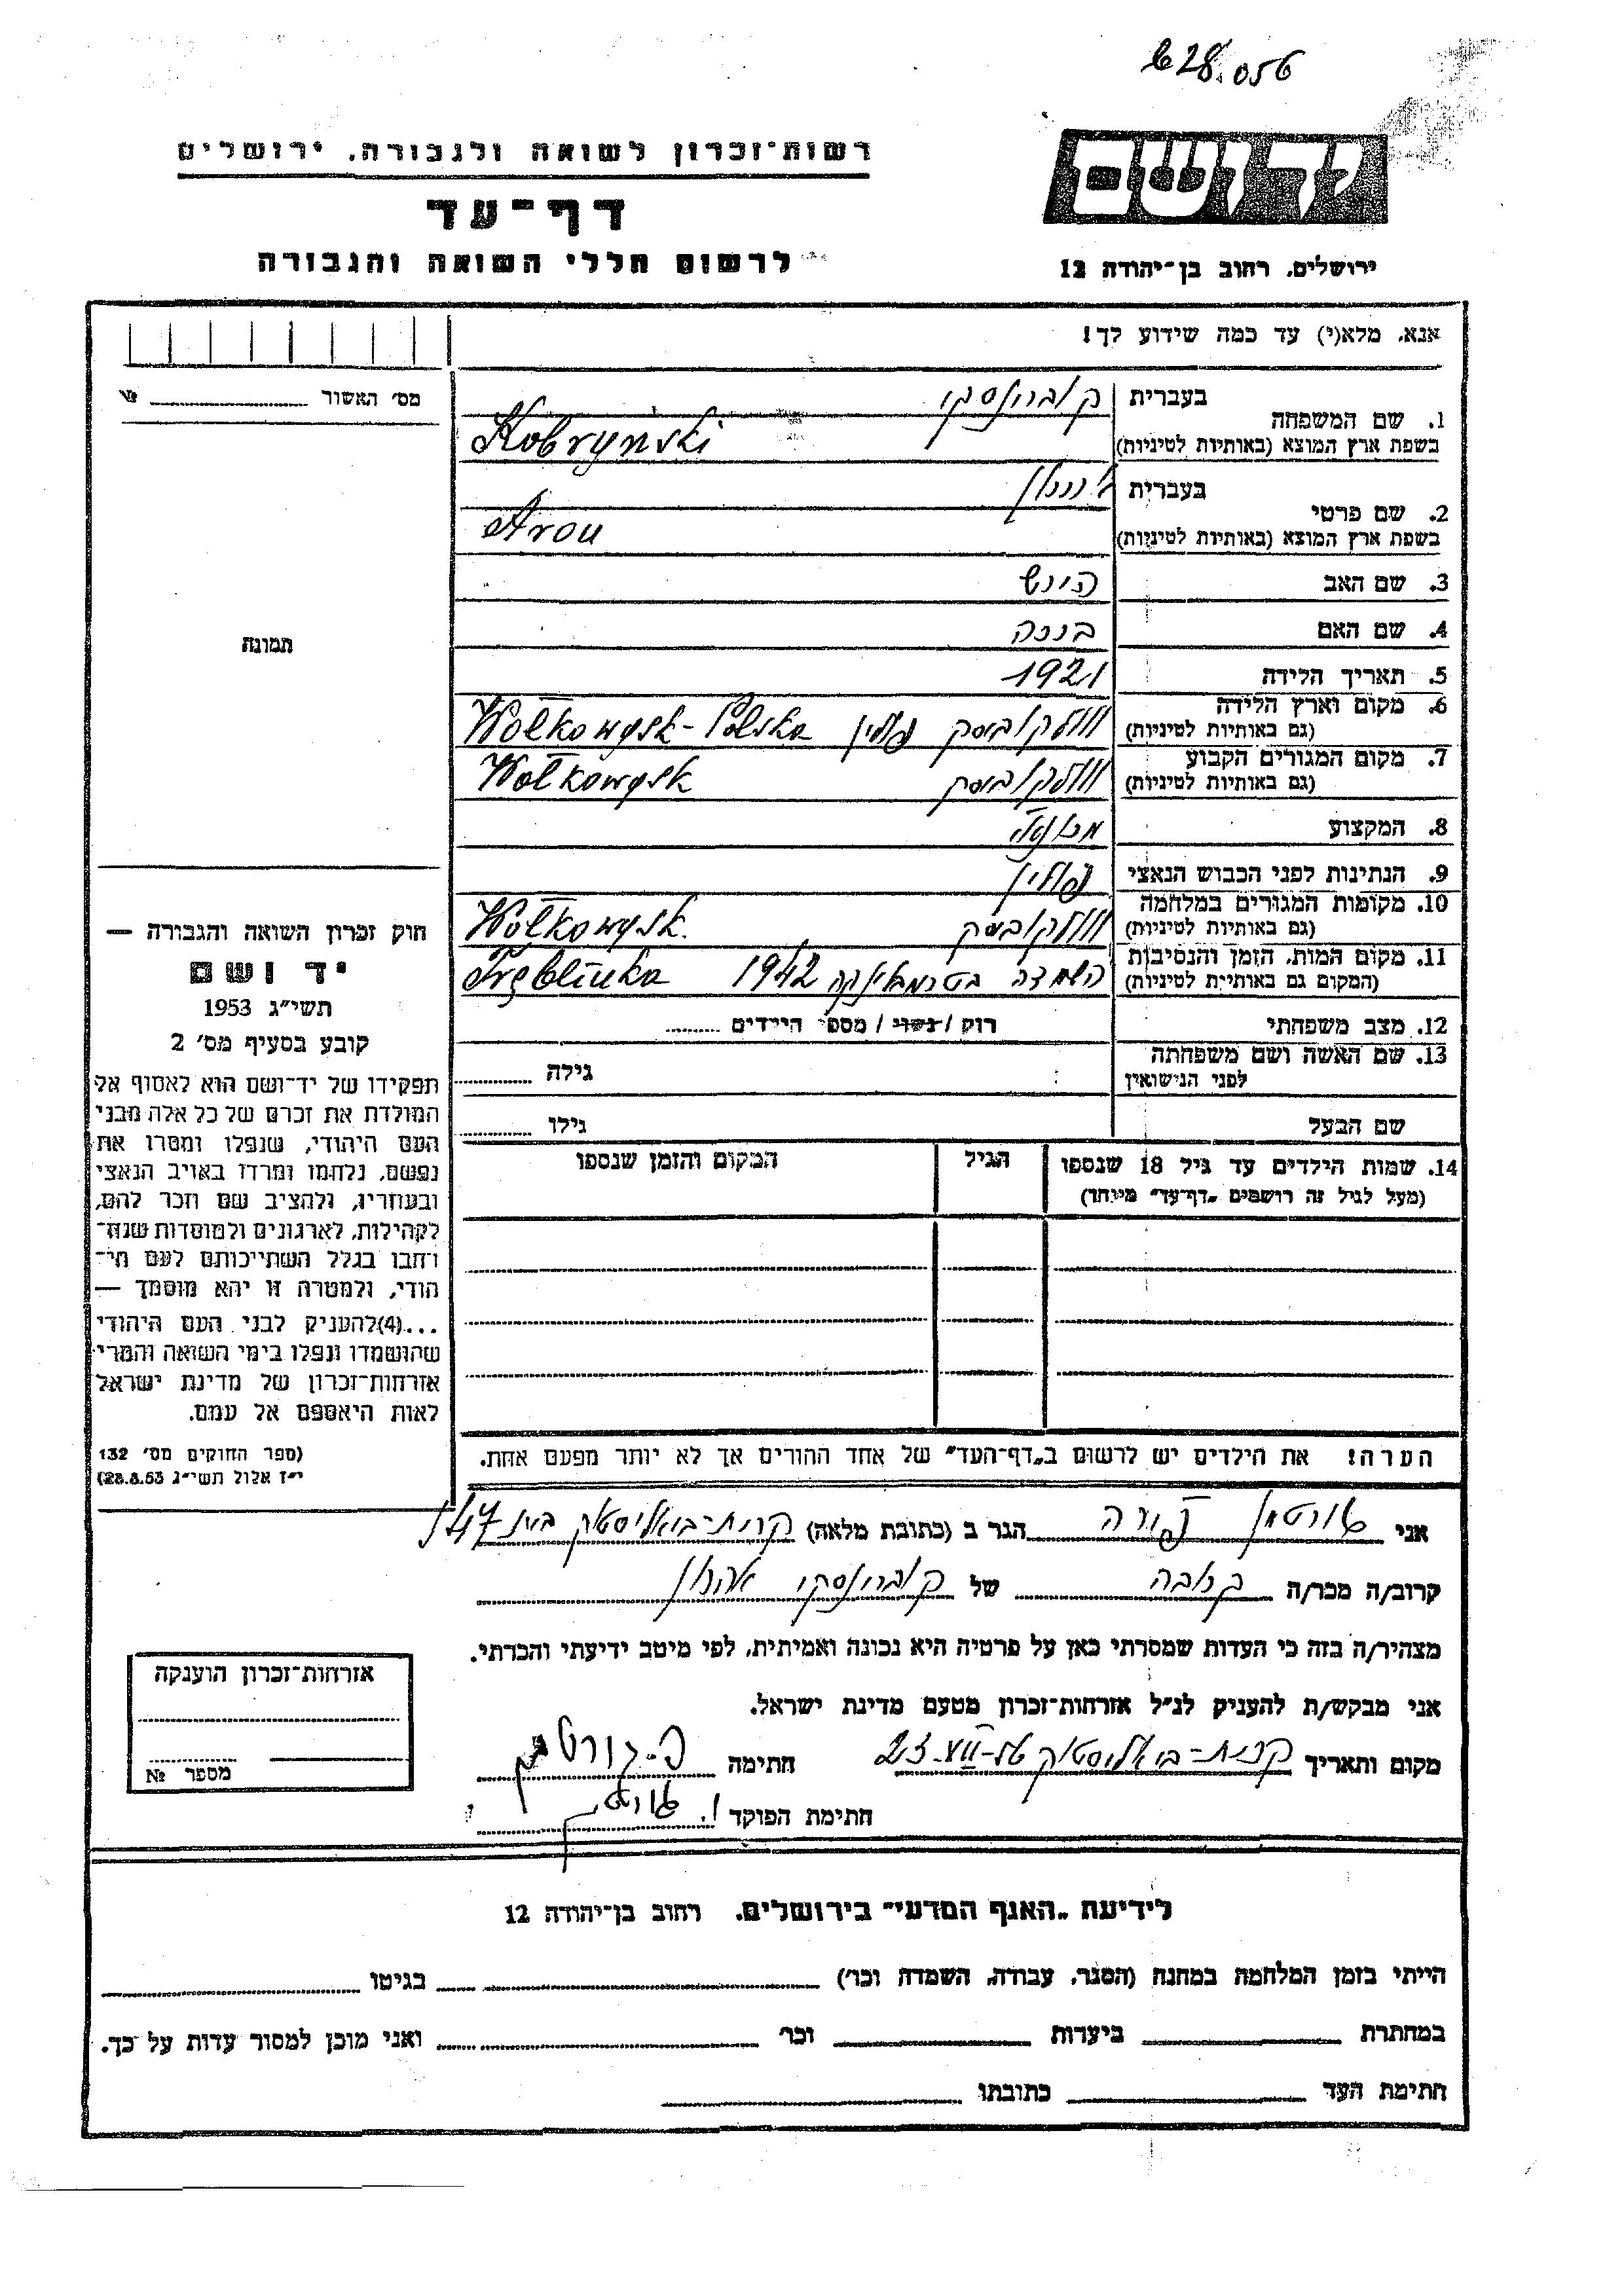 628.056
יד ושם
רשות־זכרון לשואה ולגבורה, ירושלים
דף־עד
לרשום חללי השואה והגבורה
ירושלים, רחוב בן־יהודה 12
אנא, מלא(י) עד כמה שידוע לך!
מס׳ האשור № 
תמונה
1. שם המשפחה בעברית קוברינסקי
בשפת ארץ המוצא (באותיות לטיניות) Kobryński
2. שם פרטי בעברית
בשפת ארץ המוצא (באותיות לטיניות) Aron
3. שם האב
4. שם האם
5. תאריך הלידה 1921
6. מקום וארץ הלידה (גם באותיות לטיניות) וולקוביסק פולין Wołkowysk-Polska
7. מקום המגורים הקבוע (גם באותיות לטיניות) וולקוביסק Wołkowysk
8. המקצוע
9. הנתינות לפני הכבוש הנאצי פולין
10. מקומות המגורים במלחמה (גם באותיות לטיניות) וולקוביסק Wołkowysk.
11. מקום המות, הזמן והנסיבות (המקום גם באותיות לטיניות) 1942 Treblinka
12. מצב משפחתי רוק / נשוי / מספר הילדים
13. שם האשה ושם משפחתה לפני הנישואין גילה
שם הבעל גילו
14. שמות הילדים עד גיל 18 שנספו הגיל המקום והזמן שנספו
(מעל לגיל זה רושמים „דף־עד״ מיוחד)
הערה! את הילדים יש לרשום ב„דף־העד״ של אחד ההורים אך לא יותר מפעם אחת.
חוק זכרון השואה והגבורה —
יד ושם
תשי״ג 1953
קובע בסעיף מס׳ 2
תפקידו של יד־ושם הוא לאסוף אל
המולדת את זכרם של כל אלה מבני
העם היהודי, שנפלו ומסרו את
נפשם, נלחמו ומרדו באויב הנאצי
ובעוזריו, ולהציב שם וזכר להם,
לקהילות, לארגונים ולמוסדות שנח־
רבו בגלל השתייכותם לעם הי־
הודי, ולמטרה זו יהא מוסמך —
...(4)להעניק לבני העם היהודי
שהושמדו ונפלו בימי השואה והמרי
אזרחות־זכרון של מדינת ישראל
לאות היאספם אל עמם.
(ספר החוקים מס׳ 132
י״ז אלול תשי״ג 28.8.53)
אני גורטמן הגר ב (כתובת מלאה) קרית-ביאליסטוק בית 47
קרוב/ה מכר/ה קרובה של קוברינסקי אהרון
מצהיר/ה בזה כי העדות שמסרתי כאן על פרטיה היא נכונה ואמיתית, לפי מיטב ידיעתי והכרתי.
אני מבקש/ת להעניק לנ״ל אזרחות־זכרון מטעם מדינת ישראל.
מקום ותאריך קרית-ביאליסטוק חתימה פ. גורטמן
חתימת הפוקד
אזרחות־זכרון הוענקה
מספר №
לידיעת „האגף המדעי״ בירושלים, רחוב בן־יהודה 12
הייתי בזמן המלחמה במחנה (הסגר, עבודה, השמדה וכו׳) בגיטו
במחתרת ביערות וכו׳ ואני מוכן למסור עדות על כך.
חתימת העד כתובתו